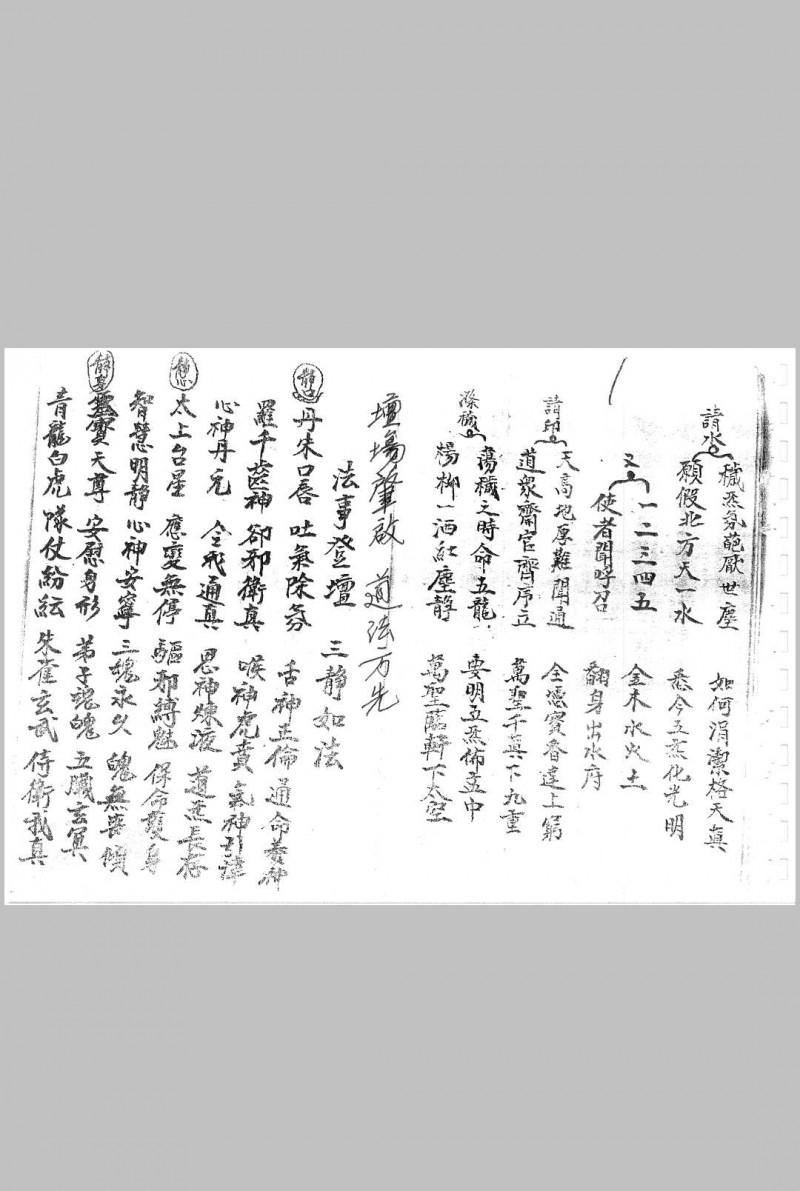 請水
穢炁氛葩厭世塵 如何涓潔格天真
願假北方天一水 悉令五炁化光明
一二三四五 金木水火土
又
使者聞呼召 翻身出水府
請印
天高地厚難聞通 全憑寶香達上穹
道衆齋官齊序立 萬聖千真下九重
滌穢
蕩穢之時命五龍 要明五炁佈盂中
楊柳一洒紅塵靜 萬聖臨軒下太空
壇塲肇啟 道法方先
法事登壇 三靜如法
靜口
丹朱口唇 吐氣除氛 舌神正倫 通命養神
羅千齒神 卻邪衛真 喉神虎賁 氣神引津
心神丹元 令我通真 思神煉液 道炁長存
靜心
太上台星 應變無停 驅邪縛魅 保命護身
智慧明靜 心神安寧 三魂永久 魄無喪傾
靜身
靈寶天尊 安慰身形 弟子魂魄 五臟玄冥
青龍白虎 隊仗紛紜 朱雀玄武 侍衛我真